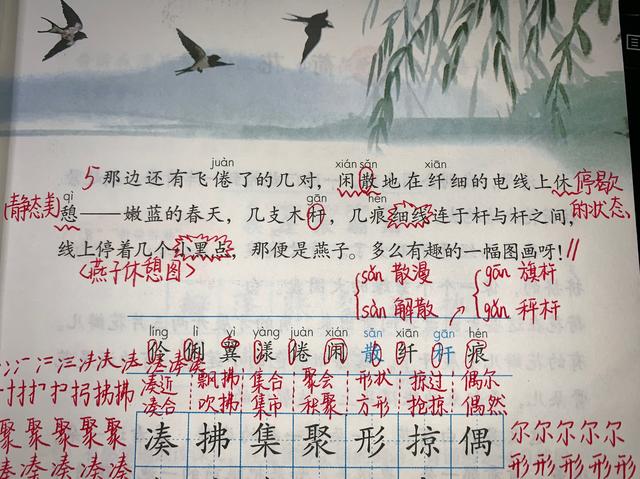 juàn xián sǎn xiān
5 那边还有飞倦了的几对，闲散地在纤细的电线上休 停歇
qì gān hén
(静态美) 憩——嫩蓝的春天，几支木杆，几痕细线连于杆与杆之间， 的状态
线上停着几个小黑点，那便是燕子。多么有趣的一幅图画呀！
〈燕子休憩图〉
sǎn 散漫 gān 旗杆
sàn 解散 gǎn 秤杆
líng lì yì yàng juàn xián sǎn xiān gān hén
伶 俐 翼 漾 倦 闲 散 纤 杆 痕
凑近 飘拂 集合 聚会 形状 掠过 偶尔
凑合 吹拂 集市 积聚 方形 抢掠 偶然
凑 拂 集 聚 形 掠 偶
聚 聚 聚 聚 聚
凑 凑 凑 凑 凑
尔 尔 尔 尔 尔
形 形 形 形 形